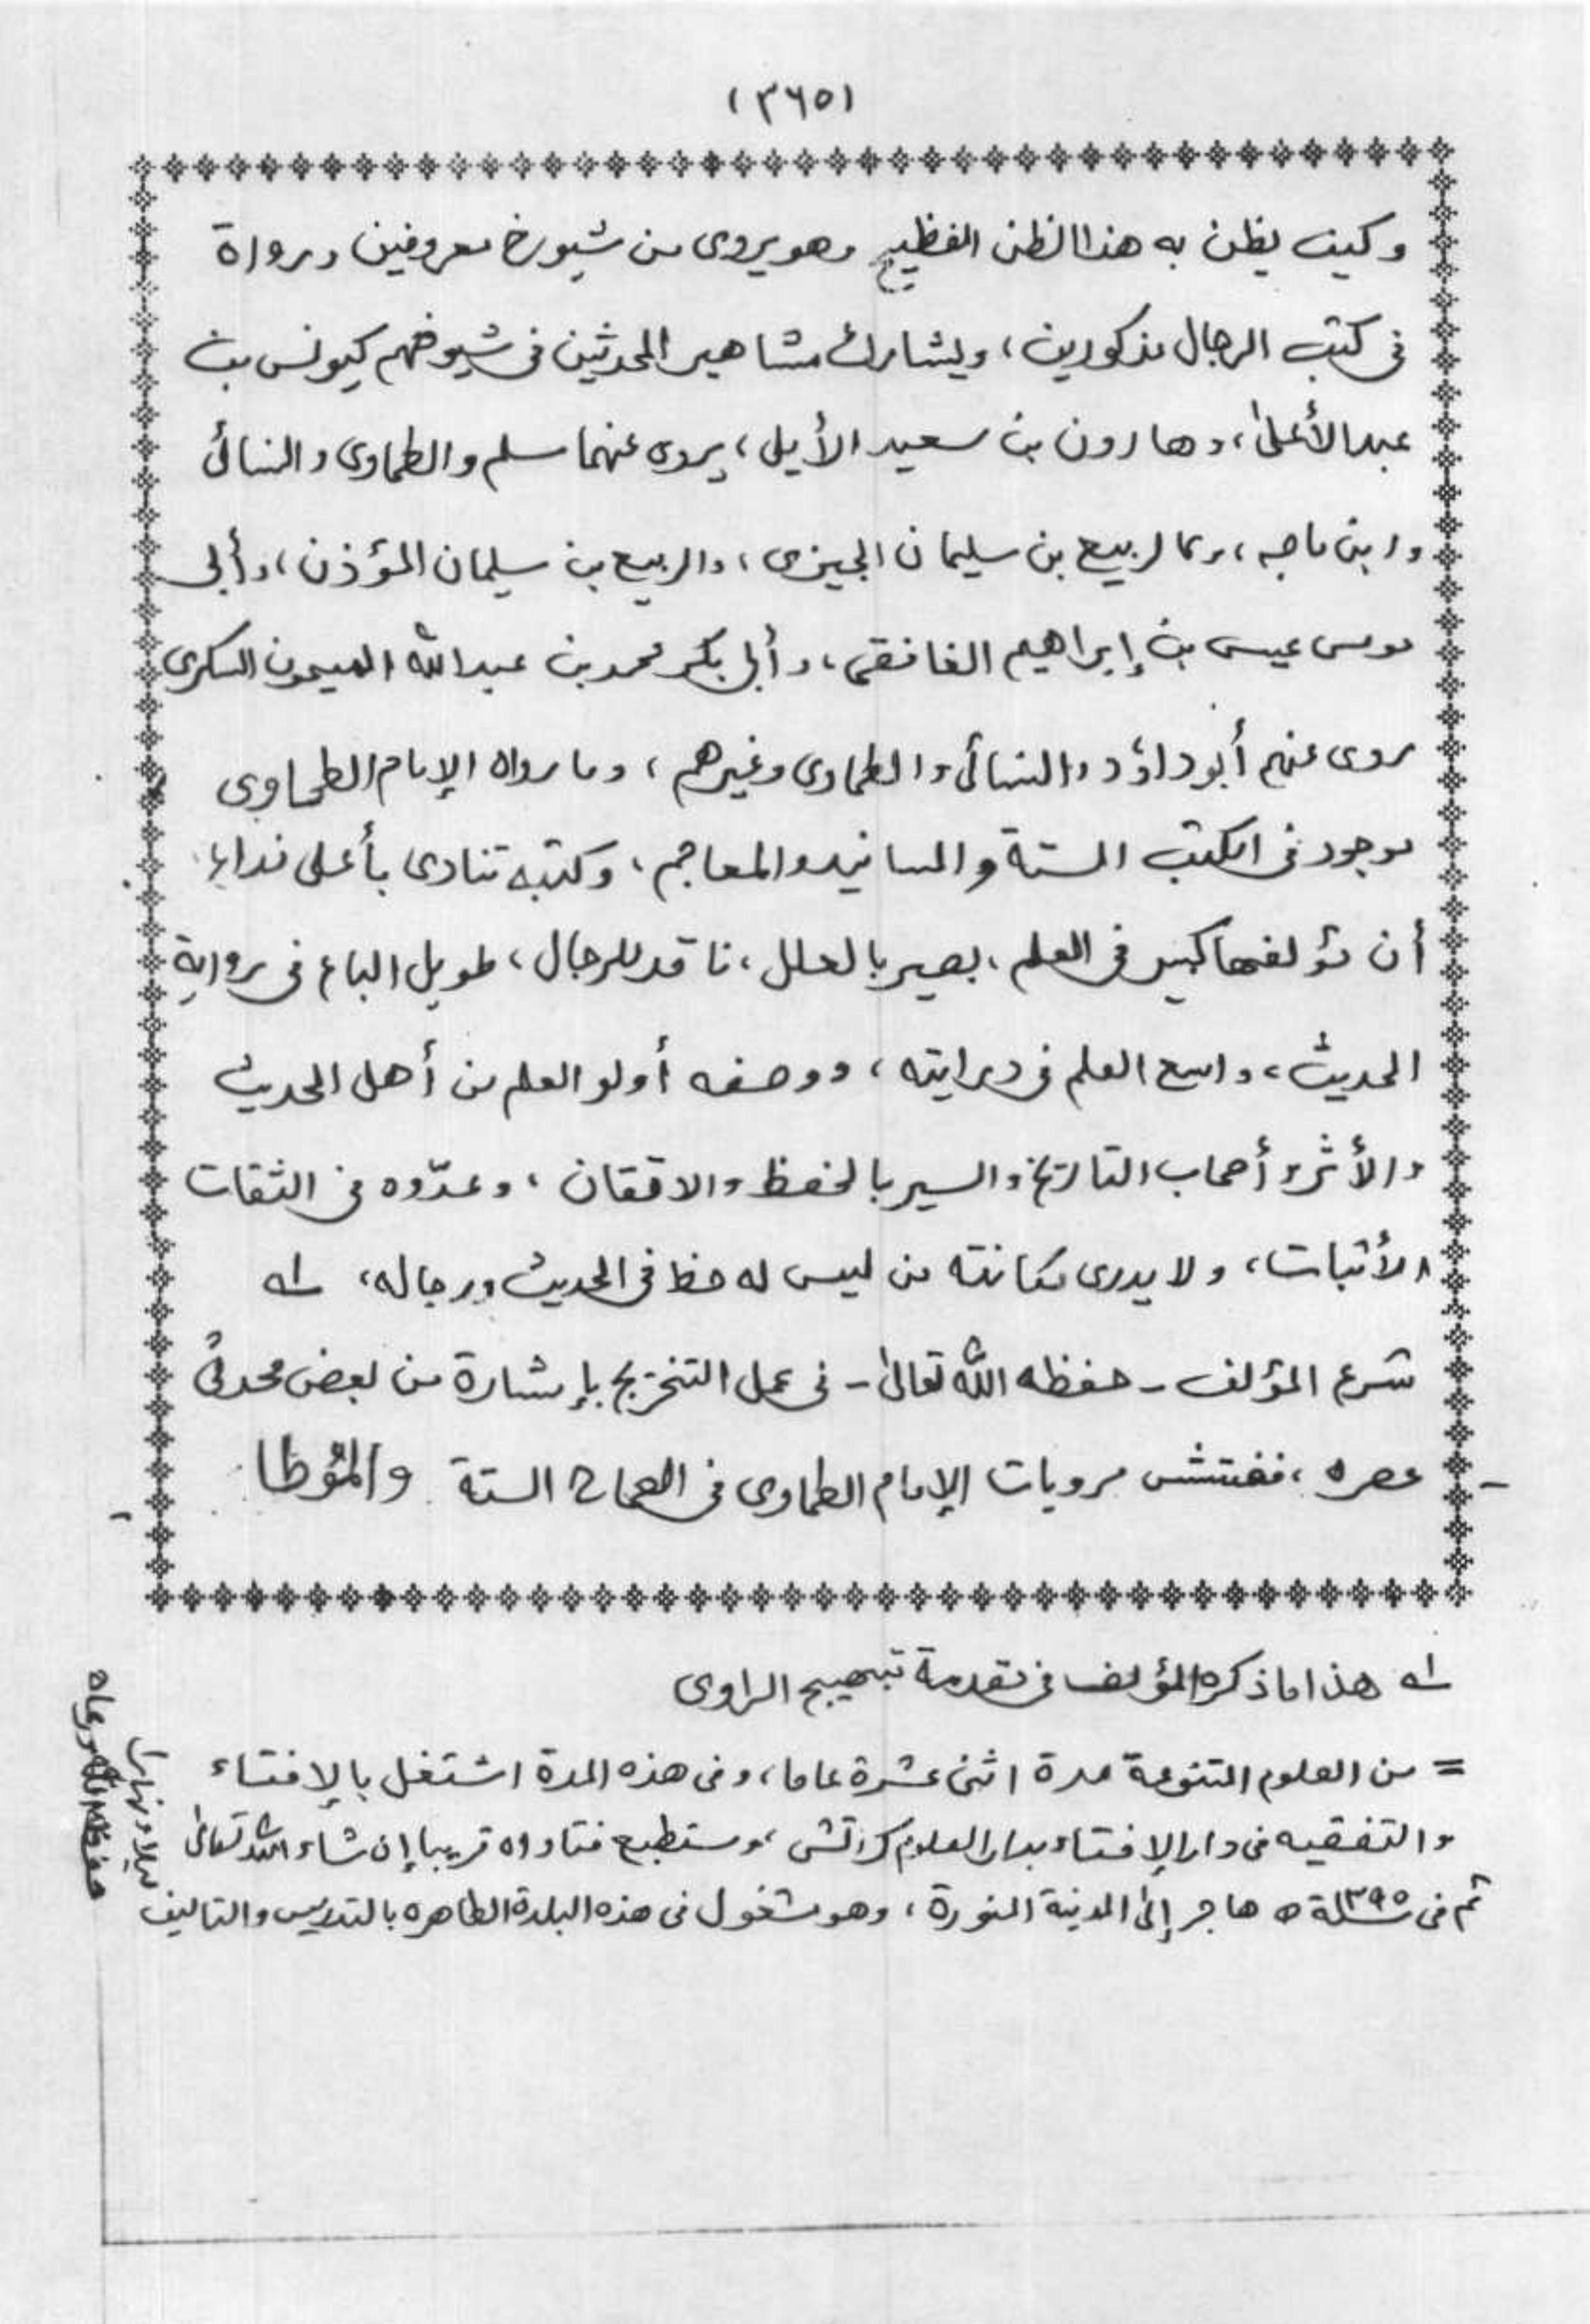 (٣٦٥)
وكيف يظن به هذا الظن الفظيع وهو يروى من شيوخ معروفين ورواة
فى كتب الرجال مذكورين، ويشارك مشاهير المحدثين فى شيوخهم كيونس بن
عبد الأعلىٰ، وهارون بن سعيد الأيلى، يروى عنهما مسلم والطحاوى والنسائى
وابن ماجه، وكالربيع بن سليمان الجيزى، والربيع بن سليمان المؤذن، وأبى
موسى عيسى بن إبراهيم الغافقى، وأبى بكر محمد بن عبد الله الميمون السكرى
روى عنهم أبو داؤد والنسائى والطحاوى وغيرهم، وما رواه الإمام الطحاوى
موجود فى الكتب الستة والمسانيد والمعاجم، وكتبه تنادى بأعلى نداء
أن مؤلفها كبير فى العلم، بصير بالعلل، ناقد للرجال، طويل الباع فى رواية
الحديث، واسع العلم فى درايته، ووصفه أولو العلم من أهل الحديث
والأثر وأصحاب التاريخ والسير بالحفظ والاتقان، وعدّوه فى الثقات
الأثبات، ولا يدرى مكانته من ليس له حظ فى الحديث ورجاله، له
شرع المؤلف - حفظه الله تعالىٰ - فى عمل التخريج بإشارة من بعض محدثى
عصره، ففتش مرويات الإمام الطحاوى فى الصحاح الستة والمؤطا
له هذا ما ذكره المؤلف فى تقدمة تبهيج الراوى
= من العلوم المتنوعة مدة اثنى عشرة عاما، وفى هذه المدة اشتغل بالإفتاء
والتفقيه فى دار الإفتاء بدار العلوم كراتشى، وستطبع فتاواه قريبا إن شاء الله تعالىٰ
ثم فى سنة ١٣٩٥ه هاجر إلىٰ المدينة المنورة، وهو مشغول فى هذه البلدة الطاهره بالتدريس والتاليف
ليلا ونهارا
حفظه الله ورعاه